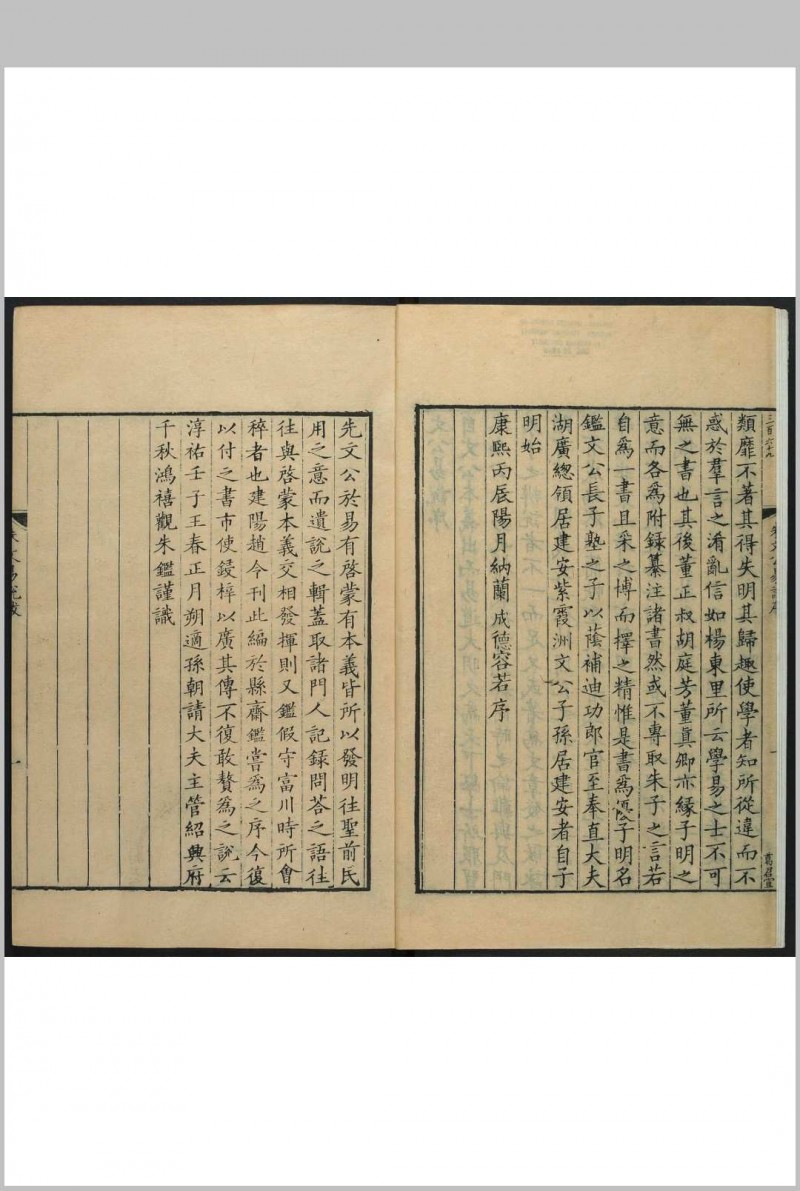 三百六十九
類靡不著其得失明其歸趣使學者知所從違而不
惑於羣言之淆亂信如楊東里所云學易之士不可
無之書也其後董正叔胡庭芳董真卿亦緣子明之
意而各為附録纂注諸書然或不專取朱子之言若
自為一書且采之博而擇之精惟是書為優子明名
鑑文公長子塾之子以蔭補迪功郎官至奉直大夫
湖廣總領居建安紫霞洲文公子孫居建安者自子
明始
康熙丙辰陽月納蘭成德容若序
先文公於易有啓蒙有本義皆所以發明往聖前民
用之意而遺説之輯蓋取諸門人記録問荅之語往
往與啓蒙本義交相發揮則又鑑假守富川時所會
稡者也建陽趙令刊此編於縣齋鑑嘗為之序今復
以付之書市使鋟梓以廣其傳不復敢贅為之説云
淳祐壬子王春正月朔適孫朝請大夫主管紹興府
千秋鴻禧觀朱鑑謹識